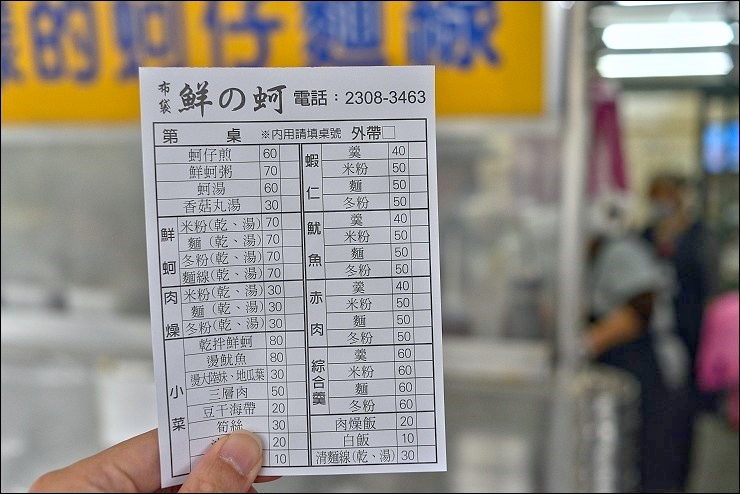 的蚵仔麵線
布袋 鮮の蚵 電話：2308-3463
第 桌 ※內用請填桌號 外帶□
蚵仔煎 60
鮮蚵粥 70
蚵湯 60
香菇丸湯 30
鮮蚵
米粉(乾、湯) 70
麵(乾、湯) 70
冬粉(乾、湯) 70
麵線(乾、湯) 70
肉燥
米粉(乾、湯) 30
麵(乾、湯) 30
冬粉(乾、湯) 30
小菜
乾拌鮮蚵 80
燙魷魚 80
燙大陸妹、地瓜葉 30
三層肉 50
豆干海帶 20
筍絲 30
20
10
蝦仁
羹 40
米粉 50
麵 50
冬粉 50
魷魚
羹 40
米粉 50
麵 50
冬粉 50
赤肉
羹 40
米粉 50
麵 50
冬粉 50
綜合羹
羹 60
米粉 60
麵 60
冬粉 60
肉燥飯 20
白飯 10
清麵線(乾、湯) 30